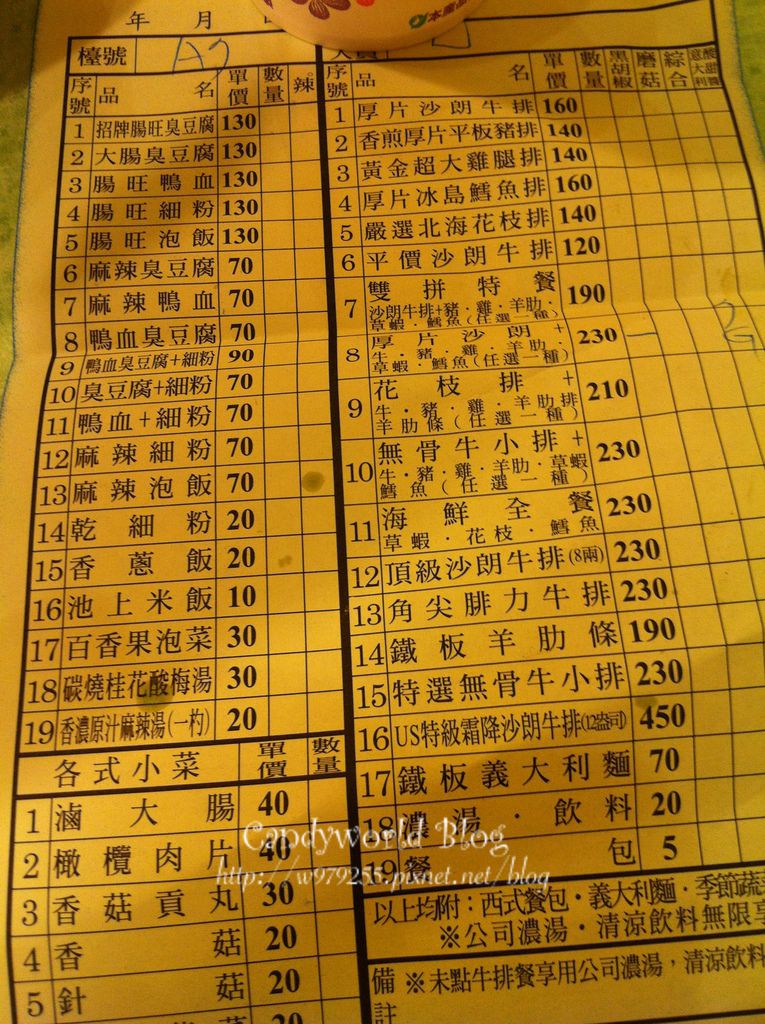 本產品
年 月
檯號 A3
序號 品名 單價 數量 辣
1 招牌腸旺臭豆腐 130
2 大腸臭豆腐 130
3 腸旺鴨血 130
4 腸旺細粉 130
5 腸旺泡飯 130
6 麻辣臭豆腐 70
7 麻辣鴨血 70
8 鴨血臭豆腐 70
9 鴨血臭豆腐+細粉 90
10 臭豆腐+細粉 70
11 鴨血+細粉 70
12 麻辣細粉 70
13 麻辣泡飯 70
14 乾細粉 20
15 香蔥飯 20
16 池上米飯 10
17 百香果泡菜 30
18 碳燒桂花酸梅湯 30
19 香濃原汁麻辣湯(一杓) 20
各式小菜 單價 數量
1 滷大腸 40
2 橄欖肉片 40
3 香菇貢丸 30
4 香菇 20
5 針菇 20
20
序號 品名 單價 數量 黑胡椒 蘑菇 綜合
1 厚片沙朗牛排 160
2 香煎厚片平板豬排 140
3 黃金超大雞腿排 140
4 厚片冰島鱈魚排 160
5 嚴選北海花枝排 140
6 平價沙朗牛排 120
7 雙拼特餐 190
沙朗牛排+豬．雞．羊肋．
草蝦．鱈魚(任選一種)
8 厚片沙朗+ 230
牛．豬．雞．羊肋．
草蝦．鱈魚(任選一種)
9 花枝排+ 210
牛．豬．雞．羊肋排
羊肋條(任選一種)
10 無骨牛小排+ 230
牛．豬．雞．羊肋．草蝦
鱈魚(任選一種)
11 海鮮全餐 230
草蝦．花枝．鱈魚
12 頂級沙朗牛排(8兩) 230
13 角尖腓力牛排 230
14 鐵板羊肋條 190
15 特選無骨牛小排 230
16 US特級霜降沙朗牛排(12盎司) 450
17 鐵板義大利麵 70
18 濃湯．飲料 20
19 餐包 5
以上均附：西式餐包．義大利麵．季節蔬
※公司濃湯．清涼飲料無限
備註 ※未點牛排餐享用公司濃湯，清涼飲料
Candyworld Blog
http://w979255.pixnet.net/blog